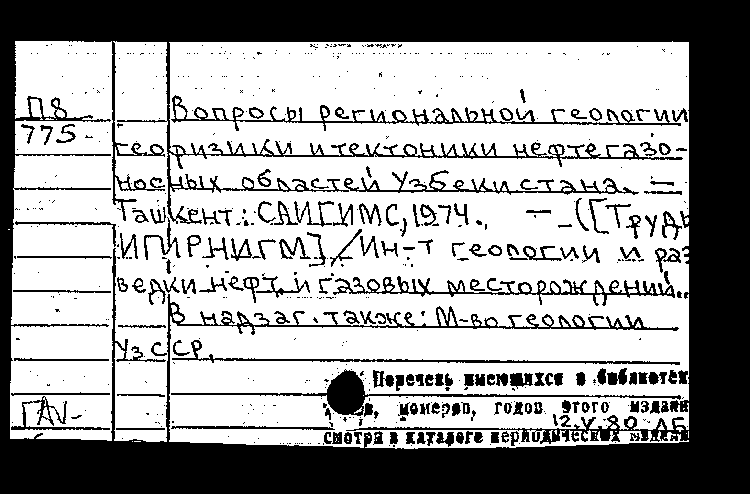 П8
775-
Вопросы региональной геологии
геофизики и тектоники нефтегазо-
носных областей Узбекистана. —
Ташкент: САИГИМС, 1974. — ([Труды
ИГИРНИГМ] / Ин-т геологии и раз
ведки нефт. и газовых месторождений..
В надзаг. также: М-во геологии
УзССР.
Перечень имеющихся в библиотек
номеров, годов этого издани
12.V.80
смотри в каталоге периодических издани